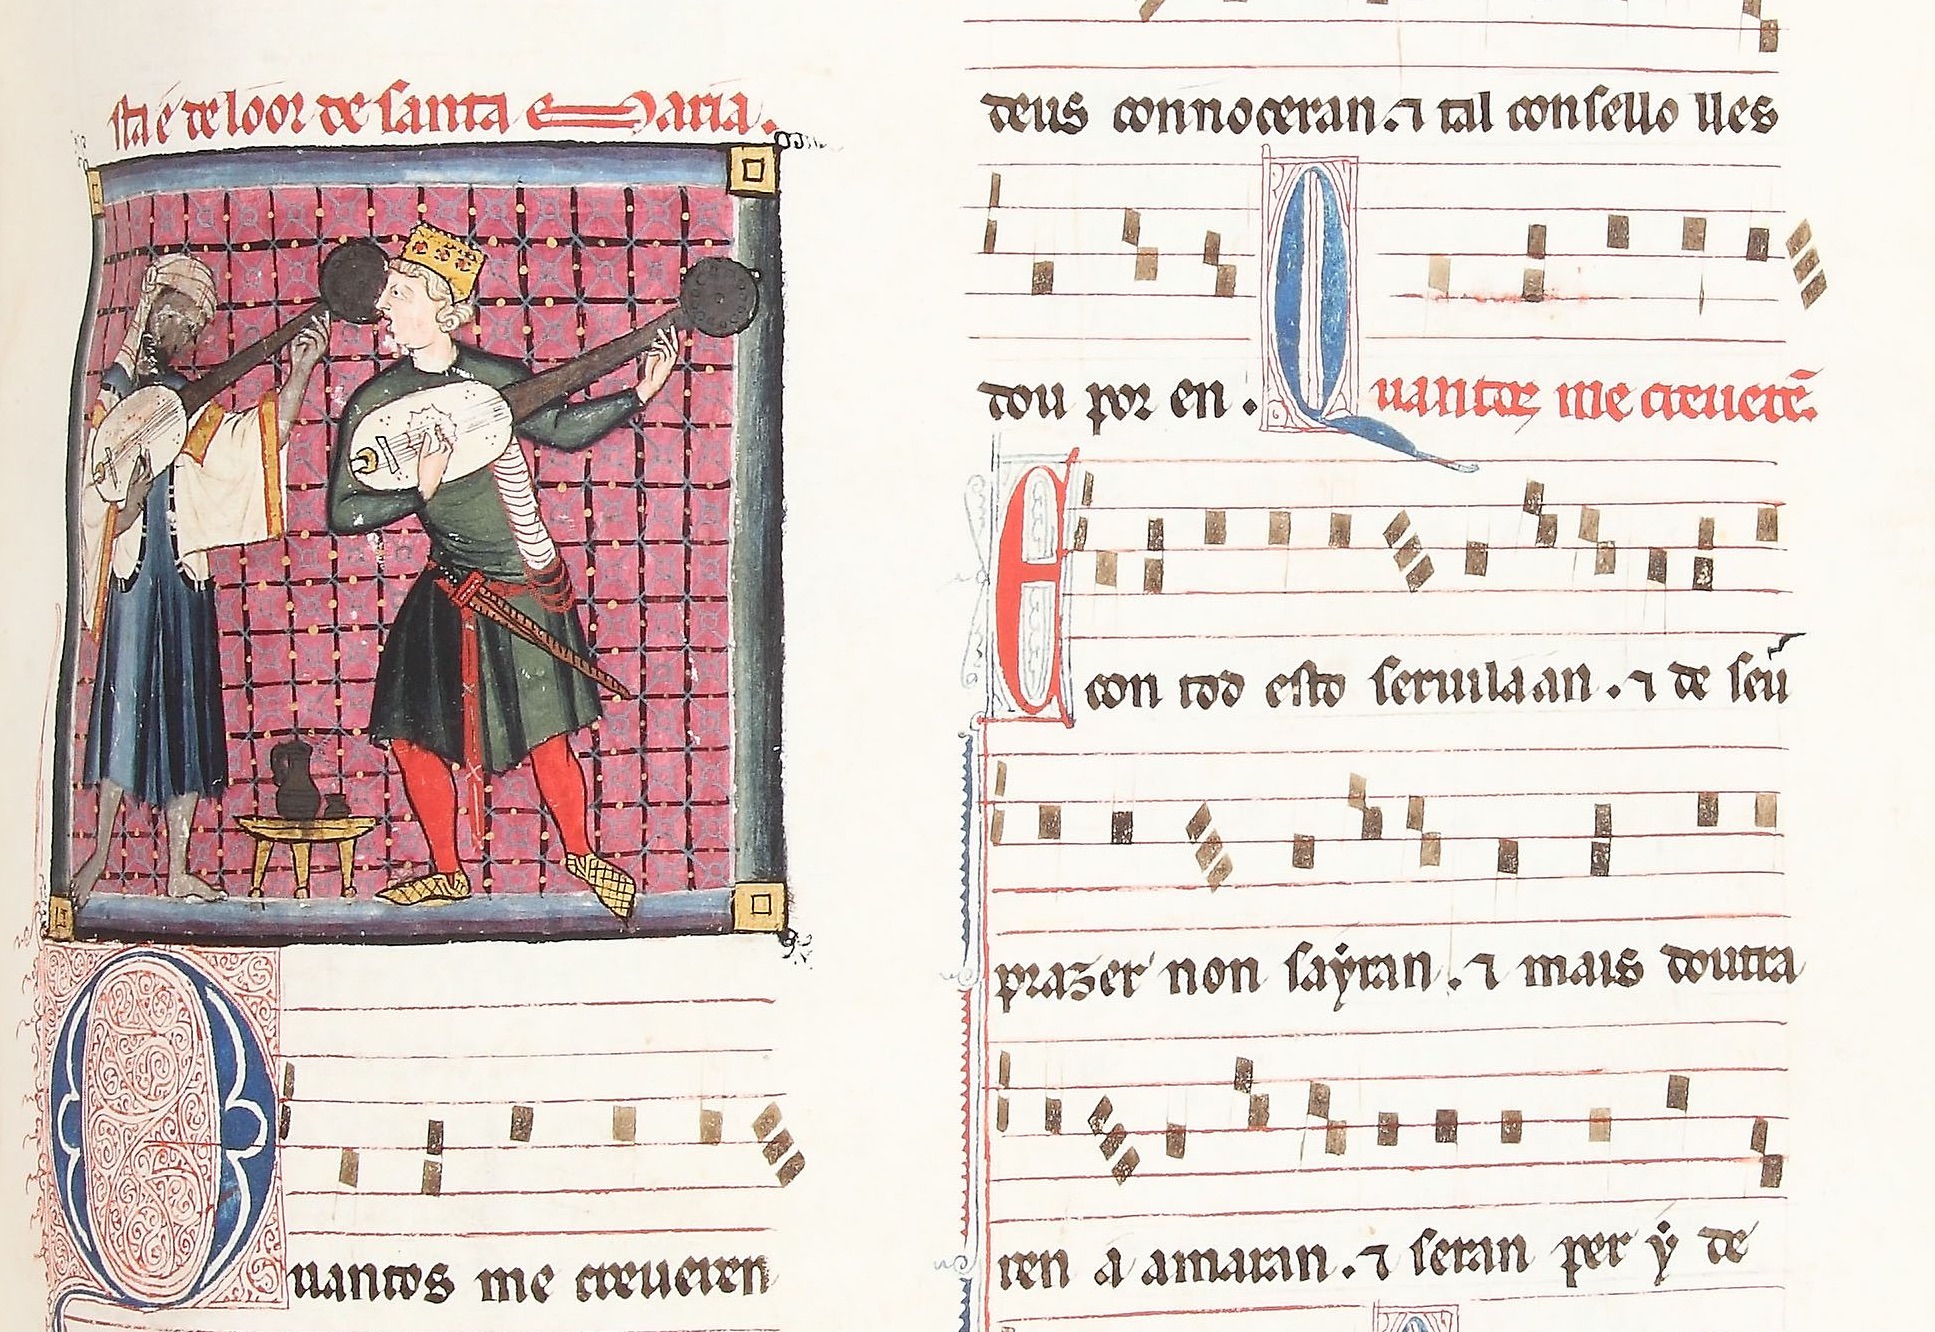 sta é de loor de santa Maria.
Quantos me creueren
deus connoceran. ⁊ tal consello lles
dou por en. Quantos me creuerē.
E con tod esto seruilaan. ⁊ de seu
prazer non saÿran. ⁊ mais doutra
ren a amaran. ⁊ seran per ẏ de